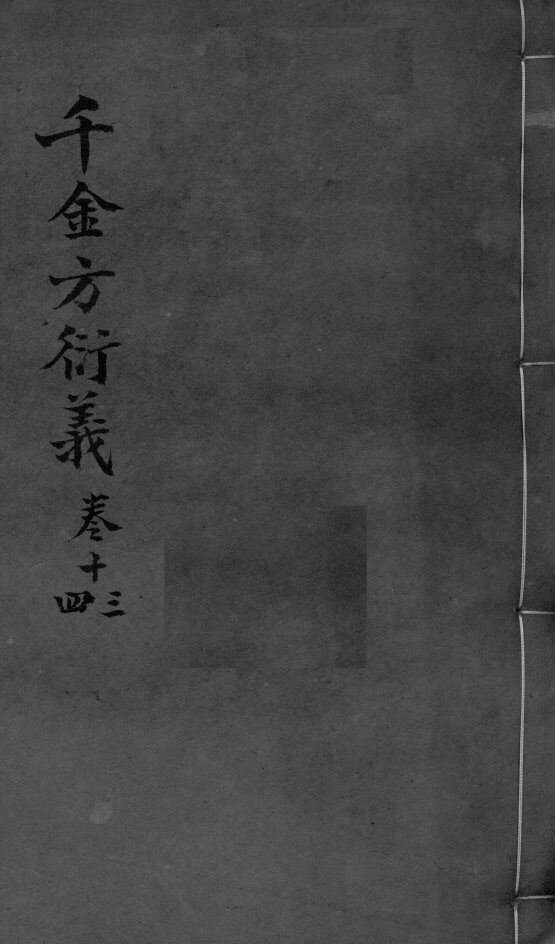 千金方衍義 卷十三四